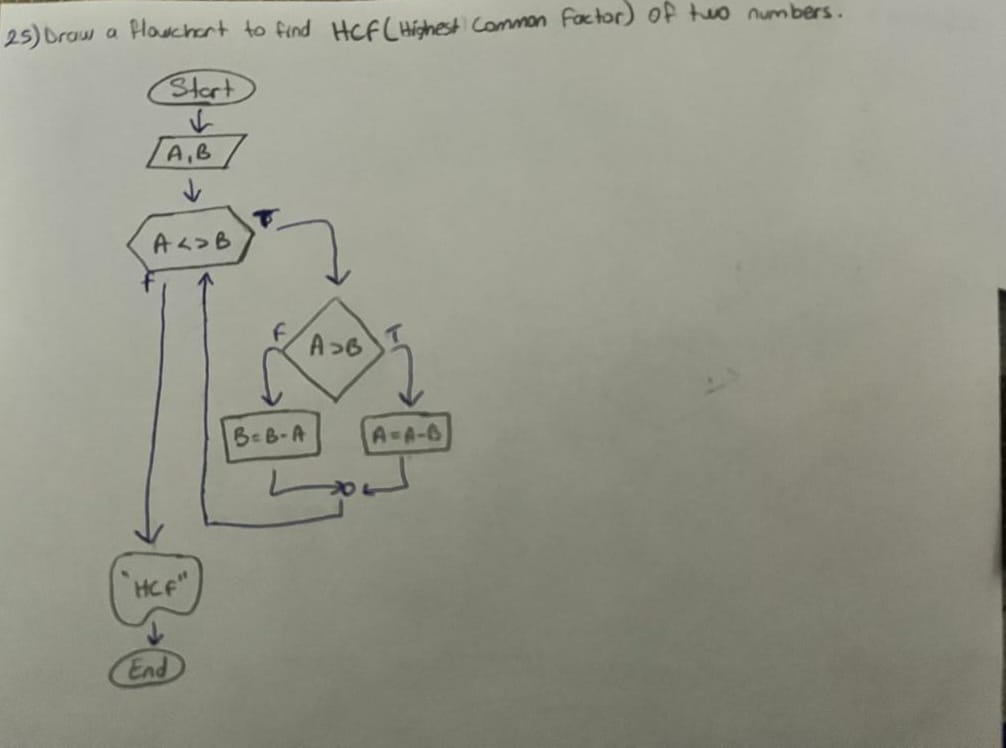 25) Draw a flowchart to find HCF (Highest Common Factor) of two numbers.
Start
A, B
A <> B
T
F
A > B
F
T
B = B - A
A = A - B
"HCF"
End